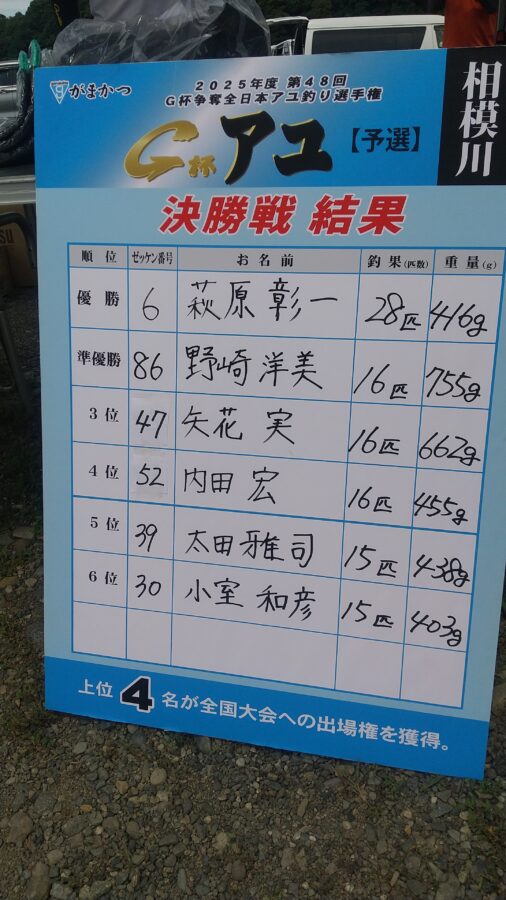 がまかつ
2025年度 第48回
G杯争奪全日本アユ釣り選手権
G杯 アユ 【予選】
相模川
決勝戦 結果
順位 ゼッケン番号 お名前 釣果(匹数) 重量(g)
優勝 6 萩原彰一 28匹 416g
準優勝 86 野崎洋美 16匹 755g
3位 47 矢花 実 16匹 662g
4位 52 内田 宏 16匹 455g
5位 39 太田雅司 15匹 438g
6位 30 小室 和彦 15匹 403g
上位4名が全国大会への出場権を獲得。